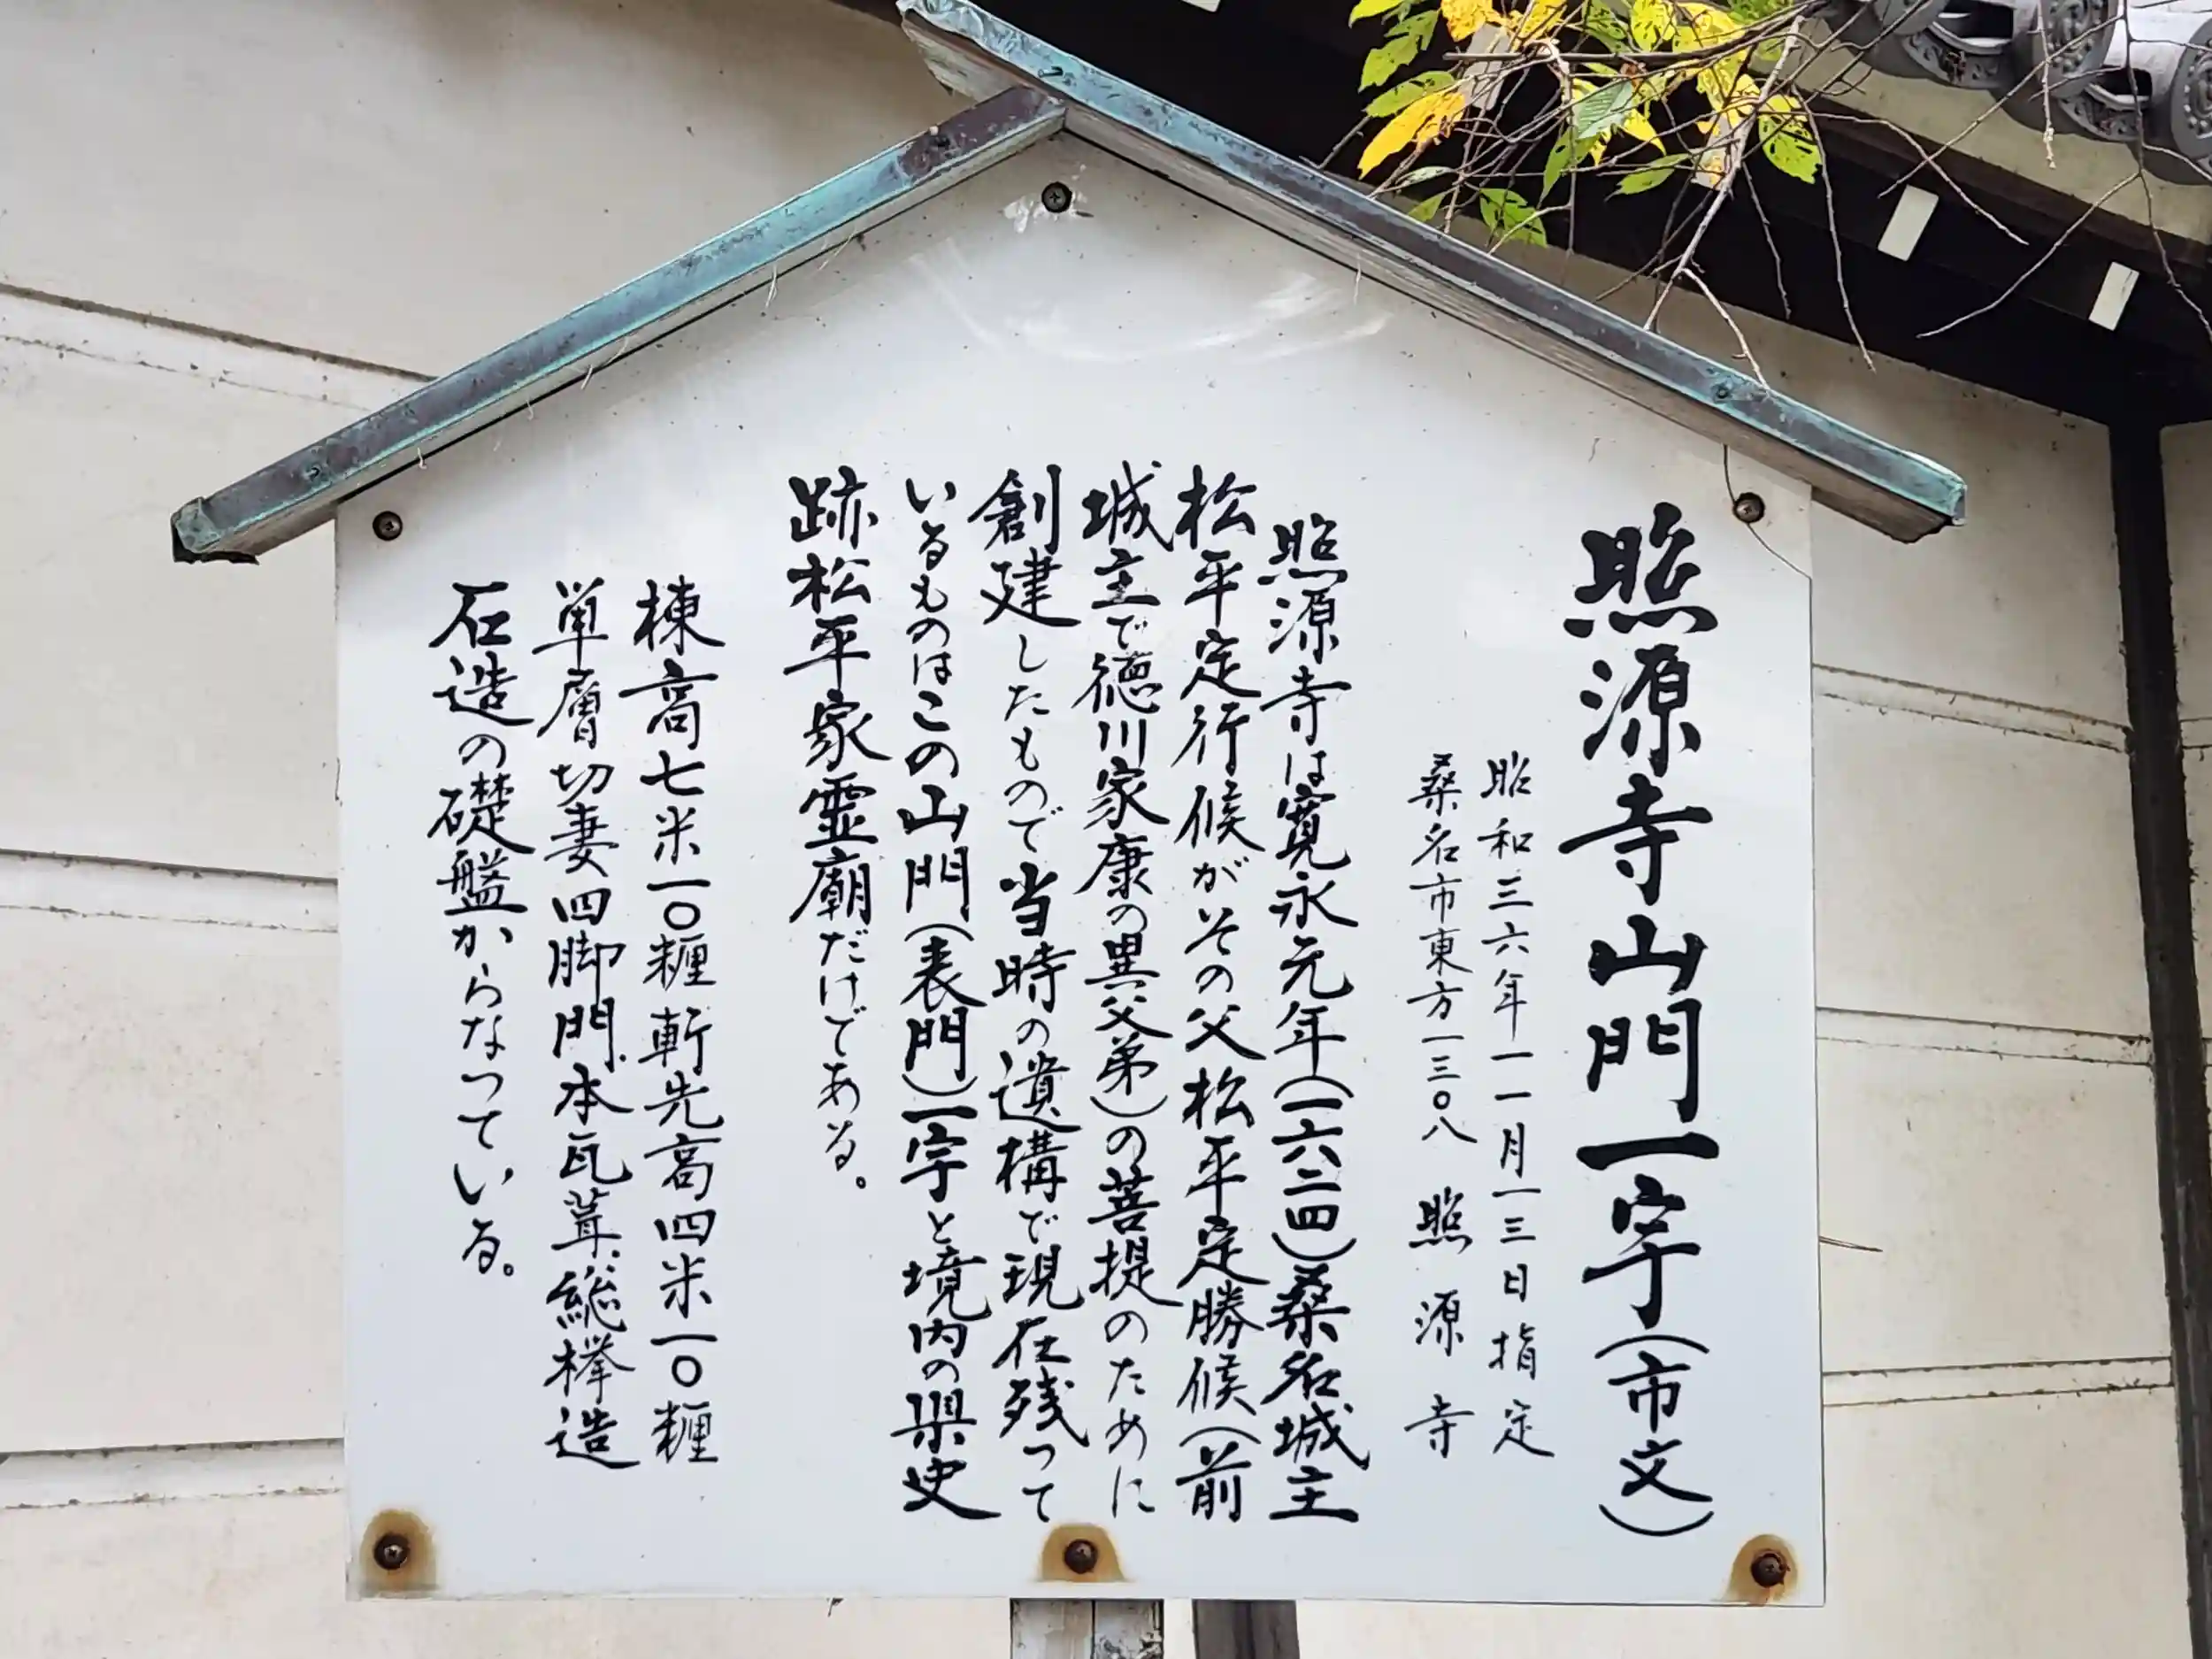 照源寺山門一宇(市文)
昭和三六年一一月一三日指定
桑名市東方一三〇八　照源寺
照源寺は寛永元年(一六二四)桑名城主
松平定行候がその父松平定勝候(前
城主で徳川家康の異父弟)の菩提のために
創建したもので当時の遺構で現在残って
いるものはこの山門(表門)一宇と境内の県史
跡松平家霊廟だけである。
棟高七米一〇糎軒先高四米一〇糎
単層切妻四脚門、本瓦葺、総欅造
石造の礎盤からなっている。